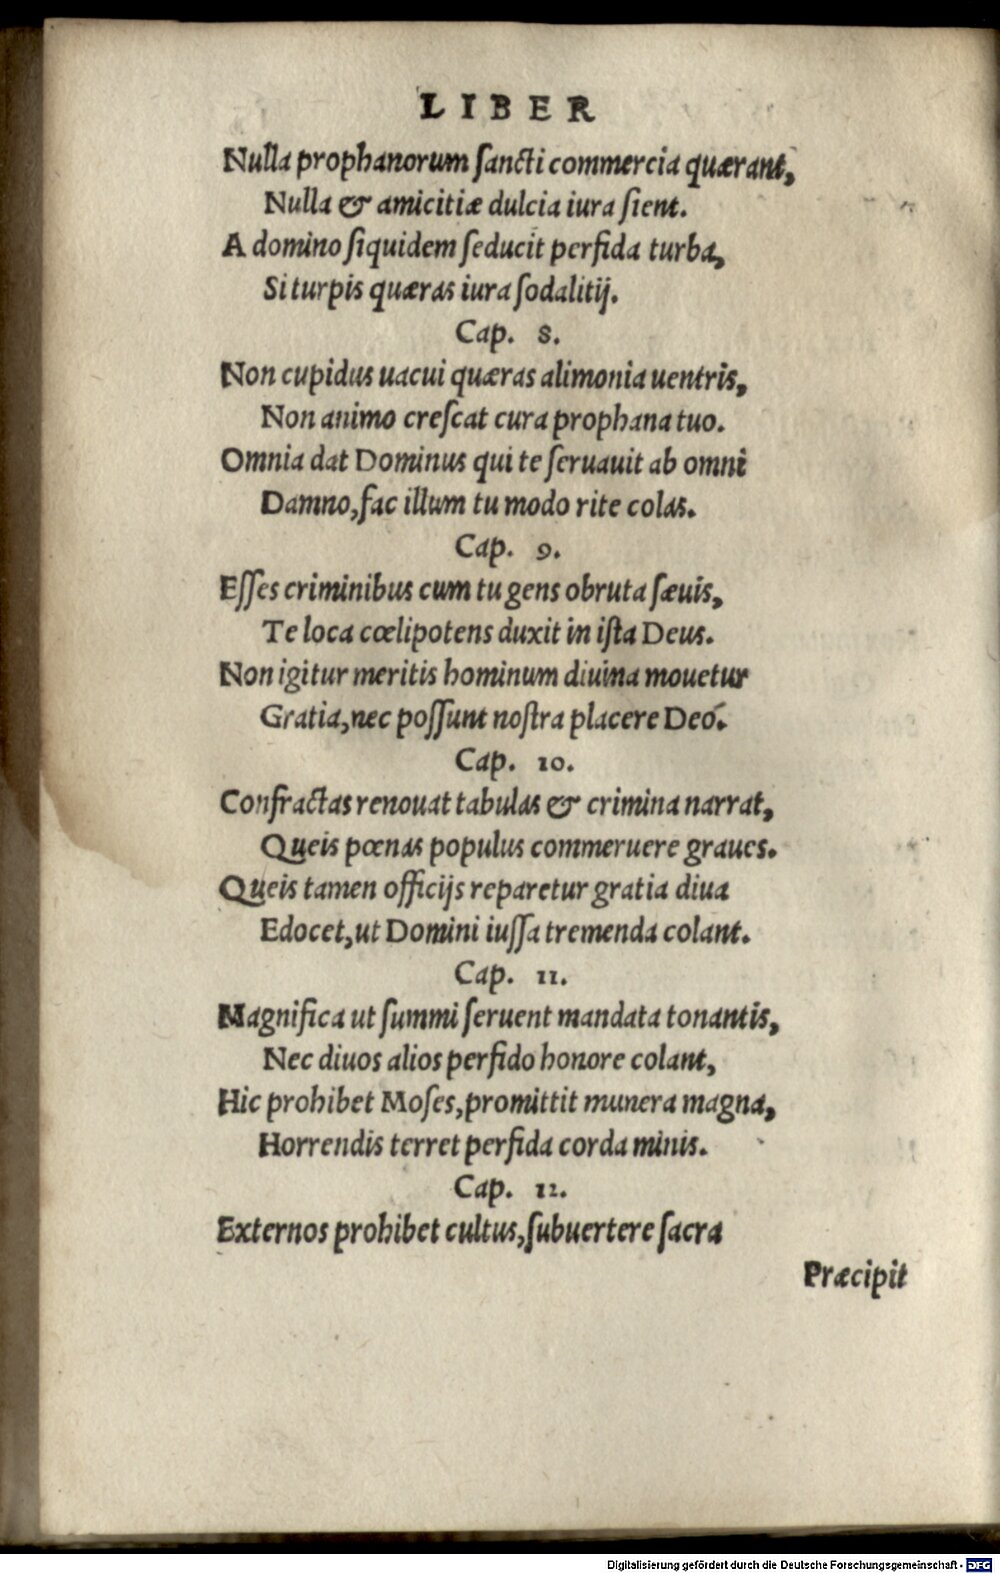 LIBER
Nulla prophanorum ſancti commercia quærant,
Nulla & amicitiæ dulcia iura ſient.
A domino ſiquidem ſeducit perfida turba,
Si turpis quæras iura ſodalitij.
Cap. 8.
Non cupidus uacui quæras alimonia uentris,
Non animo creſcat cura prophana tuo.
Omnia dat Dominus qui te ſeruauit ab omni
Damno, fac illum tu modo rite colas.
Cap. 9.
Eſſes criminibus cum tu gens obruta ſæuis,
Te loca cœlipotens duxit in iſta Deus.
Non igitur meritis hominum diuina mouetur
Gratia, nec poſſunt noſtra placere Deo.
Cap. 10.
Confractas renouat tabulas & crimina narrat,
Queis pœnas populus commeruere graues.
Queis tamen officijs reparetur gratia diua
Edocet, ut Domini iuſſa tremenda colant.
Cap. 11.
Magnifica ut ſummi ſeruent mandata tonantis,
Nec diuos alios perfido honore colant,
Hic prohibet Moſes, promittit munera magna,
Horrendis terret perfida corda minis.
Cap. 12.
Externos prohibet cultus, ſubuertere ſacra
Præcipit
Digitalisierung gefördert durch die Deutsche Forschungsgemeinschaft - DFG